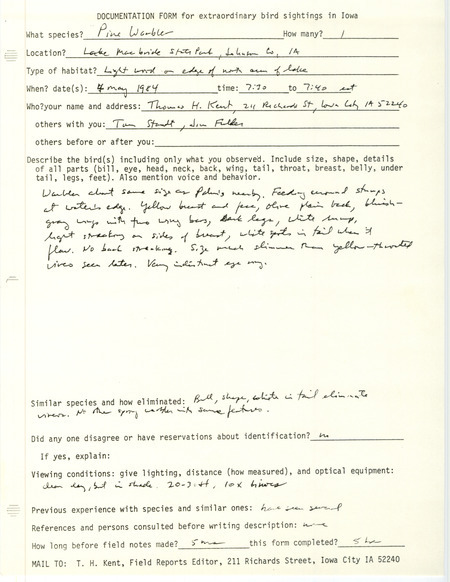 DOCUMENTATION FORM for extraordinary bird sightings in Iowa
What species? Pine Warbler How many? 1
Location? Lake Macbride State Park, Johnson Co, IA
Type of habitat? Light wood on edge of north arm of lake
When? date(s): 4 May 1984 time: 7:20 to 7:40 
Who?your name and address: Thomas H. Kent, 211 Richards St, Iowa City IA 52240
others with you: Tom Staudt, Jim Fuller
others before or after you:
Describe the bird(s) including only what you observed. Include size, shape, details
of all parts (bill, eye, head, neck, back, wing, tail, throat, breast, belly, under
tail, legs, feet). Also mention voice and behavior.
Warbler about same size as Palms nearby. Feeding around stumps
at water's edge. Yellow breast and face, olive plain back, bluish-
gray wings with two wing bars, dark legs, white rump,
light streaking on sides of breast, white spots in tail when it
flew. No back streaking. Size much slimmer than yellow-throated
vireos seen later. Very indistinct eye ring.
Similar species and how eliminated: Bill, shape, white in tail eliminate
vireos. No other spring warbler with same features.
Did any one disagree or have reservations about identification? no
If yes, explain:
Viewing conditions: give lighting, distance (how measured), and optical equipment:
clear day, but in shade. 20-30 ft, 10x binocs
Previous experience with species and similar ones: have seen several
References and persons consulted before writing description: none
How long before field notes made? 5 min this form completed? 5 hr
MAIL TO: T. H. Kent, Field Reports Editor, 211 Richards Street, Iowa City IA 52240